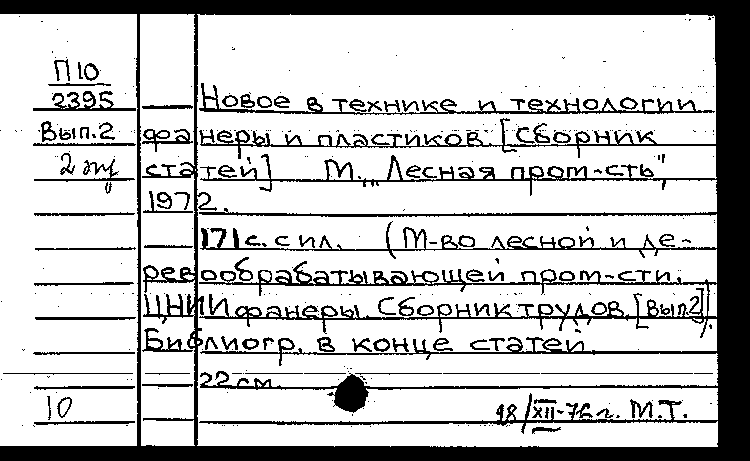 П10
2395
Новое в технике и технологии
Вып.2
фанеры и пластиков. [Сборник
2 экз
статей] М., "Лесная пром-сть",
1972.
171 с. с ил. (М-во лесной и де-
ревообрабатывающей пром-сти.
ЦНИИ фанеры. Сборник трудов. [Вып.2]).
Библиогр. в конце статей.
22 см.
10
18/XII-72 г. М.Т.